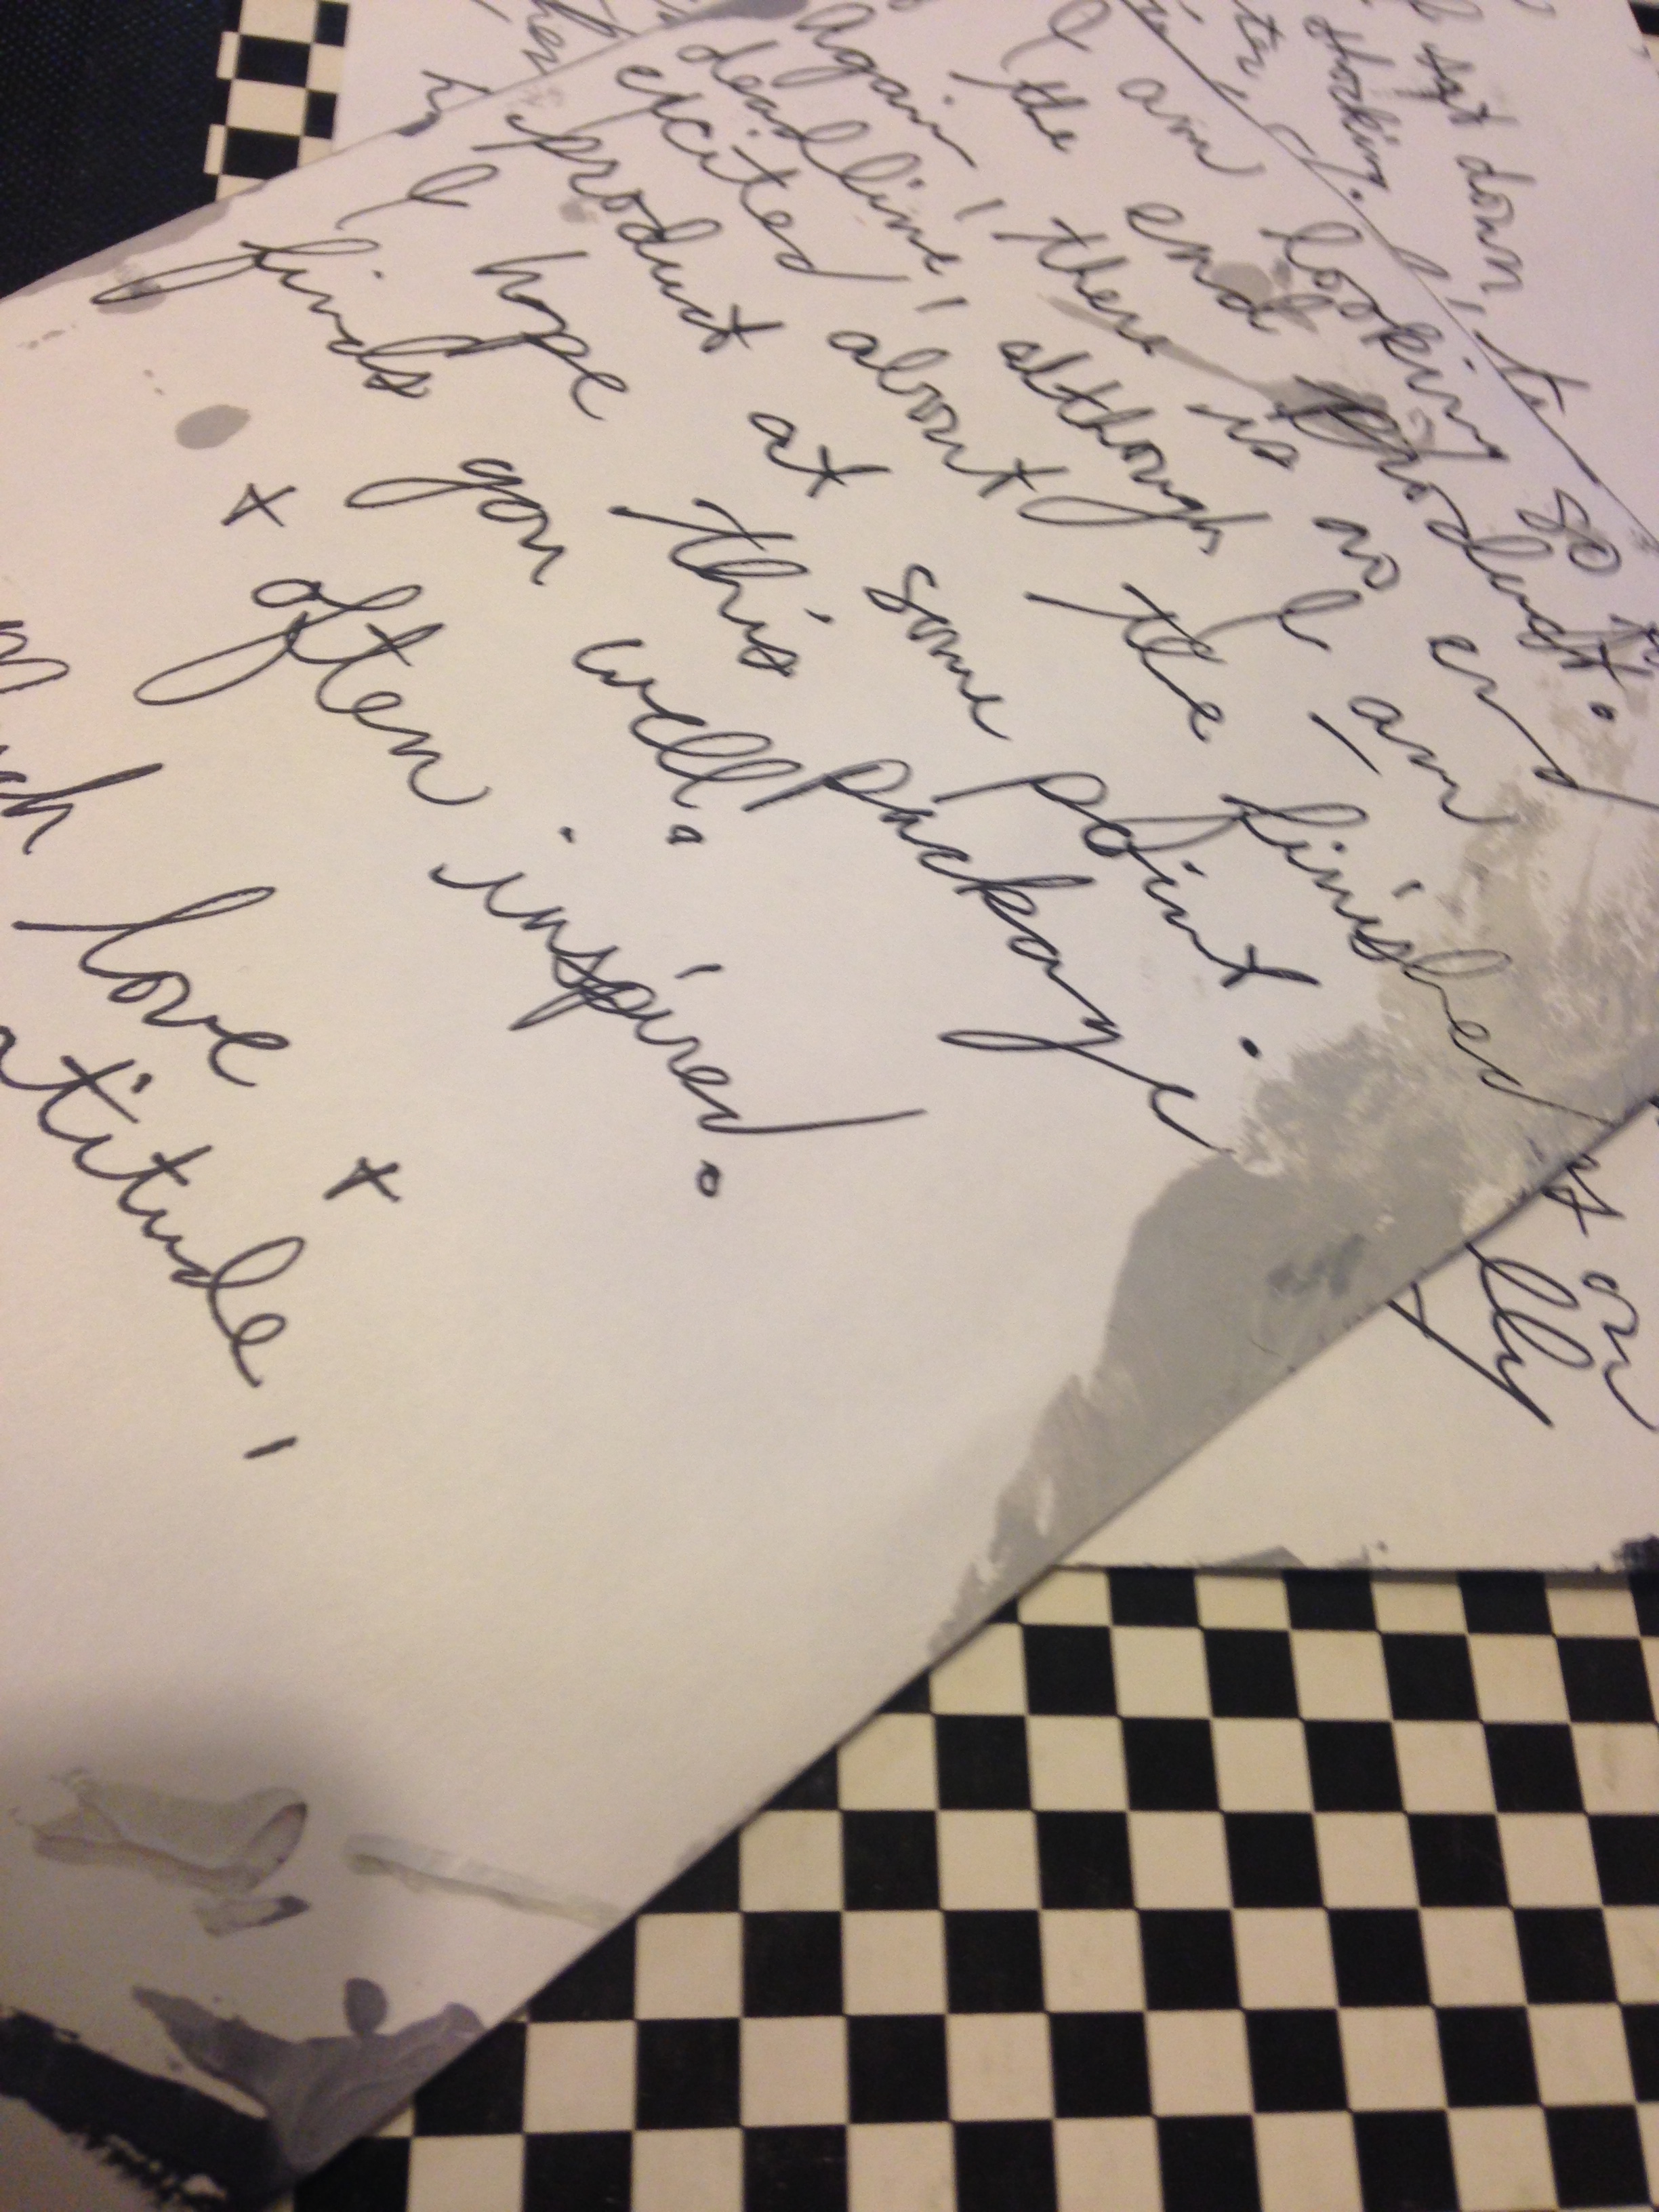 sat down, to
shocking.
I am looking so
the end product.
Again, there is no end
deadline, although I am
excited about the finished
product at some point.
I hope this package
finds you well.
+ often inspired.
ch love +
atitude,
on
lly